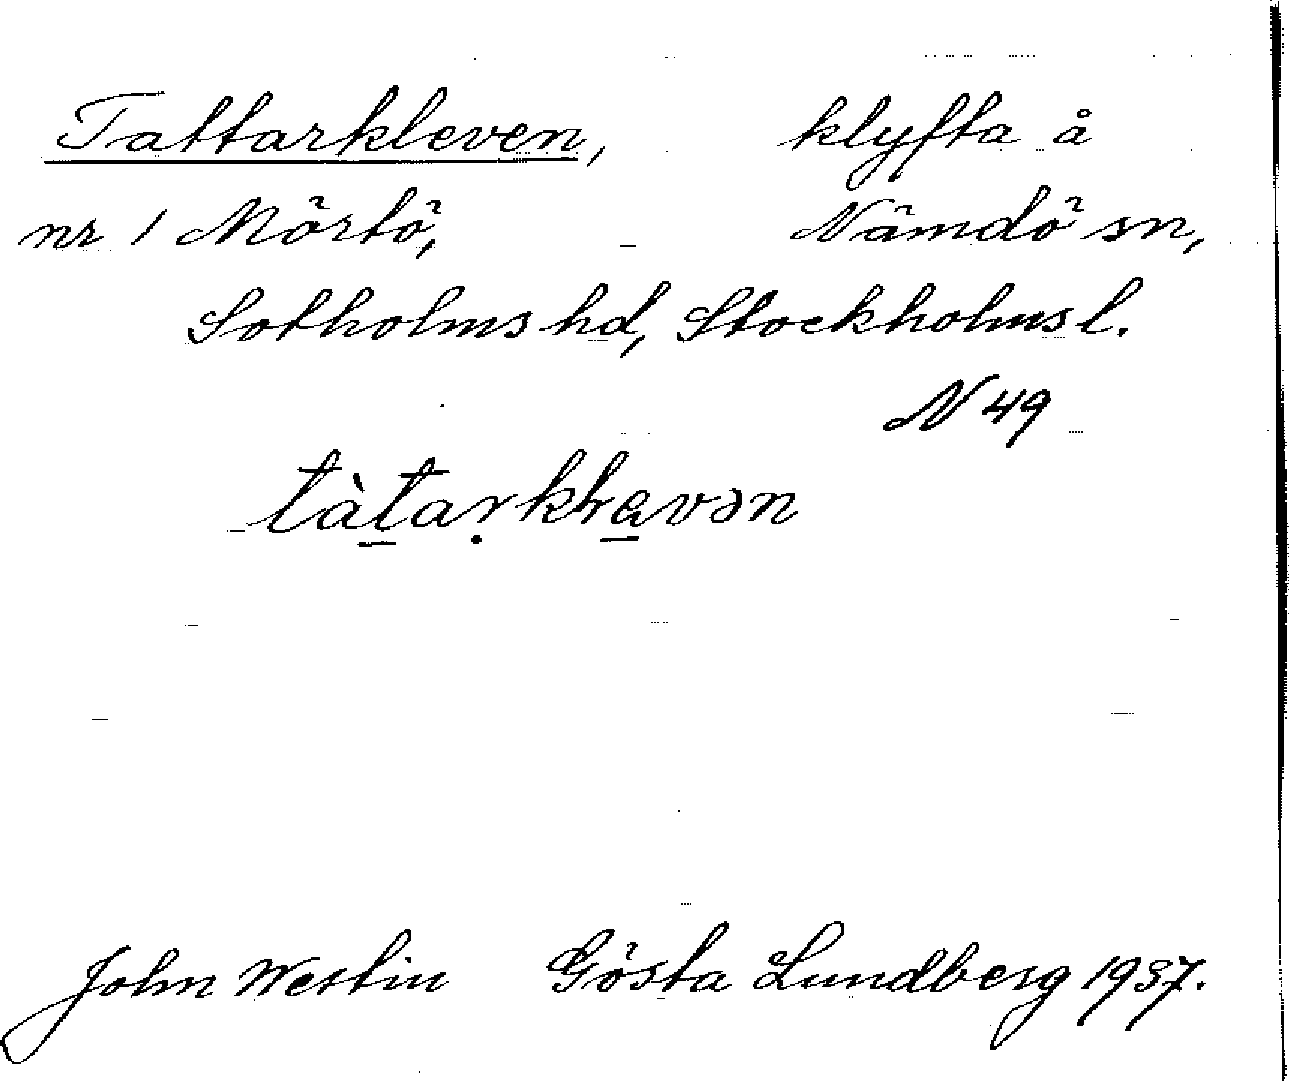 Tattarkleven, klyfta å
nr 1 Mörtö, Nämdö sn,
Sotholms hd, Stockholms l.
N 49
tàtarkləvən
John Westin Gösta Lundberg 1937.